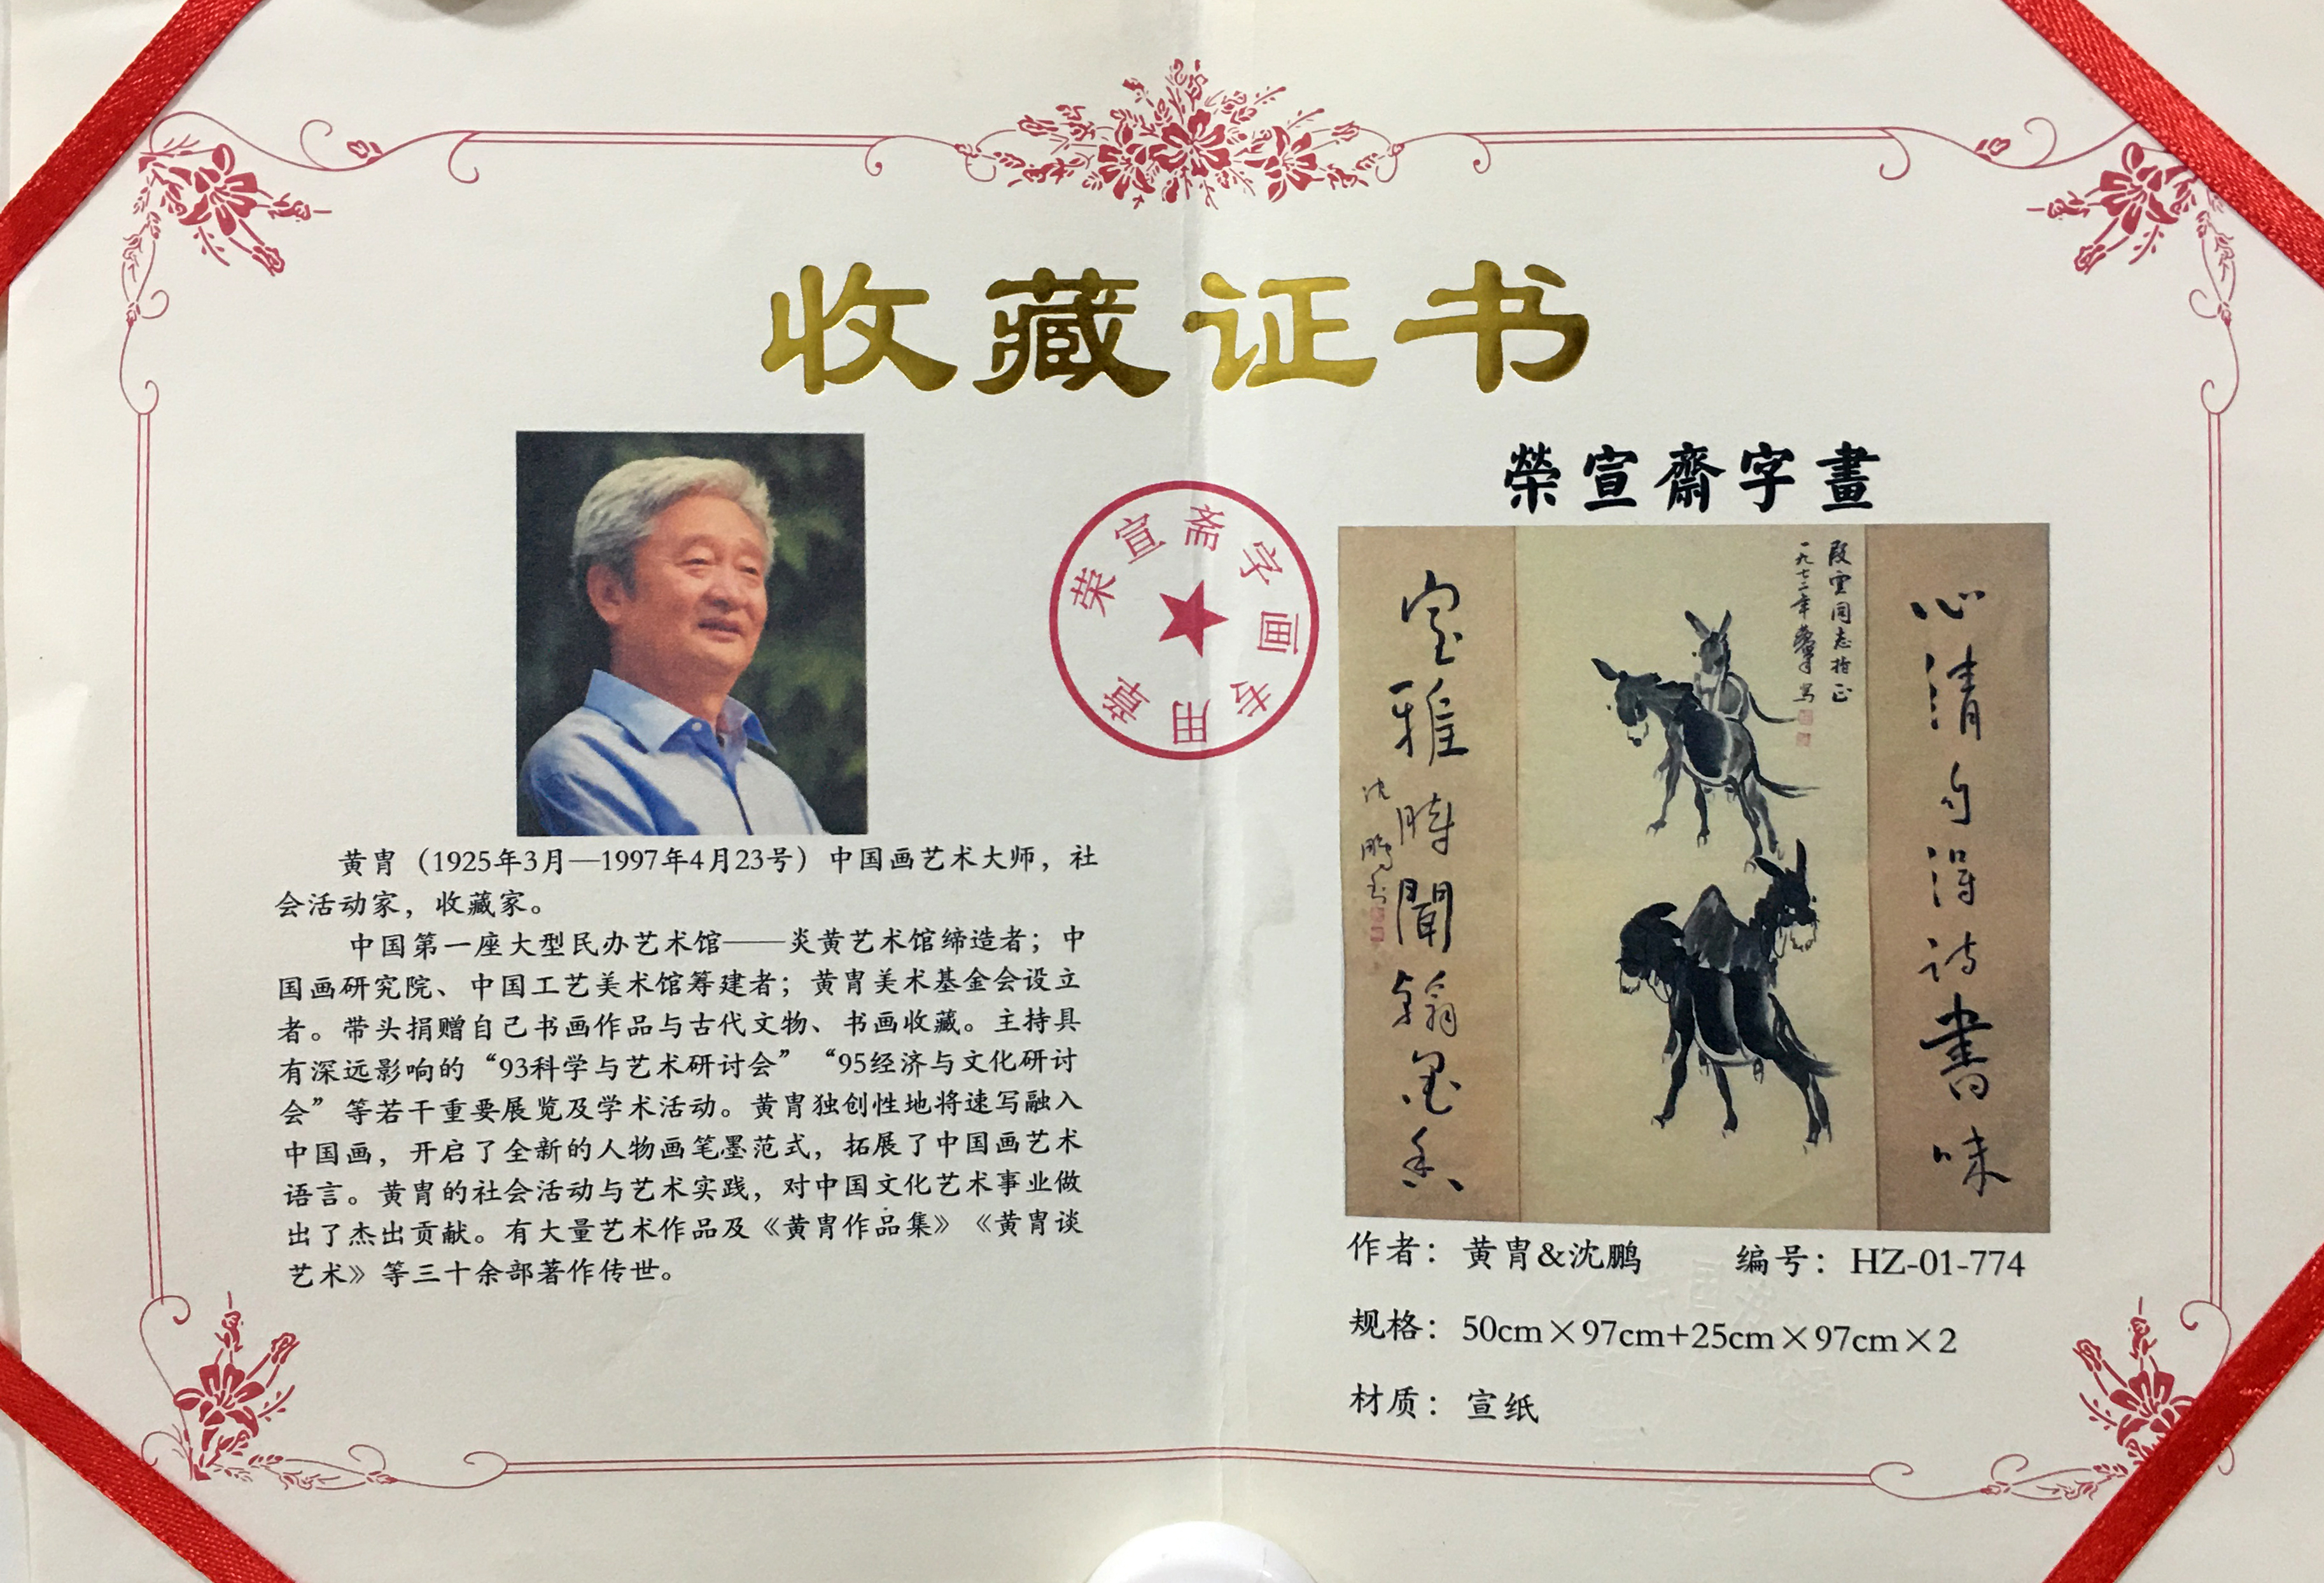 收藏证书
荣宣斋字画专用章
黄胄（1925年3月—1997年4月23号）中国画艺术大师，社
会活动家，收藏家。
中国第一座大型民办艺术馆——炎黄艺术馆缔造者；中
国画研究院、中国工艺美术馆筹建者；黄胄美术基金会设立
者。带头捐赠自己书画作品与古代文物、书画收藏。主持具
有深远影响的“93科学与艺术研讨会”“95经济与文化研讨
会”等若干重要展览及学术活动。黄胄独创性地将速写融入
中国画，开启了全新的人物画笔墨范式，拓展了中国画艺术
语言。黄胄的社会活动与艺术实践，对中国文化艺术事业做
出了杰出贡献。有大量艺术作品及《黄胄作品集》《黄胄谈
艺术》等三十余部著作传世。
榮宣齋字畫
心清自得詩書味
段雲同志指正
一九七二年黄胄写
室雅時聞翰墨香
沈鵬書
作者：黄胄&沈鹏
编号：HZ-01-774
规格：50cm×97cm+25cm×97cm×2
材质：宣纸